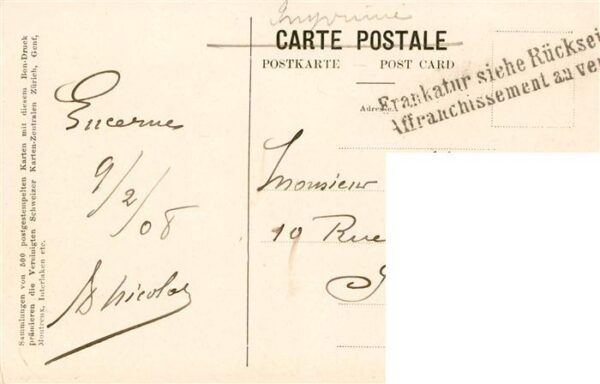 Imprimé
CARTE POSTALE
POSTKARTE — POST CARD
Adresse
Frankatur siehe Rücksei
Affranchissement au ver
Lucerne
9/2/08
Nicolas
Monsieur
10 Rue
Sammlungen von 500 postgestempelten Karten mit diesem Bon-Druck
prämieren die Vereinigten Schweizer Karten-Zentralen Zürich, Genf,
Montreux, Interlaken etc.